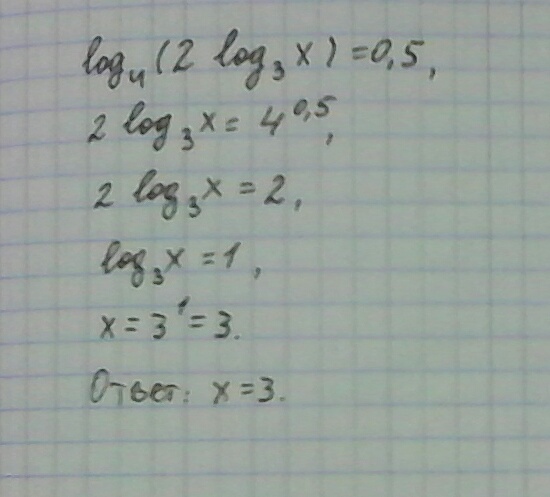 log₄(2 log₃x)=0,5,
2 log₃x=4^0,5,
2 log₃x=2,
log₃x=1,
x=3¹=3.
Ответ: x=3.